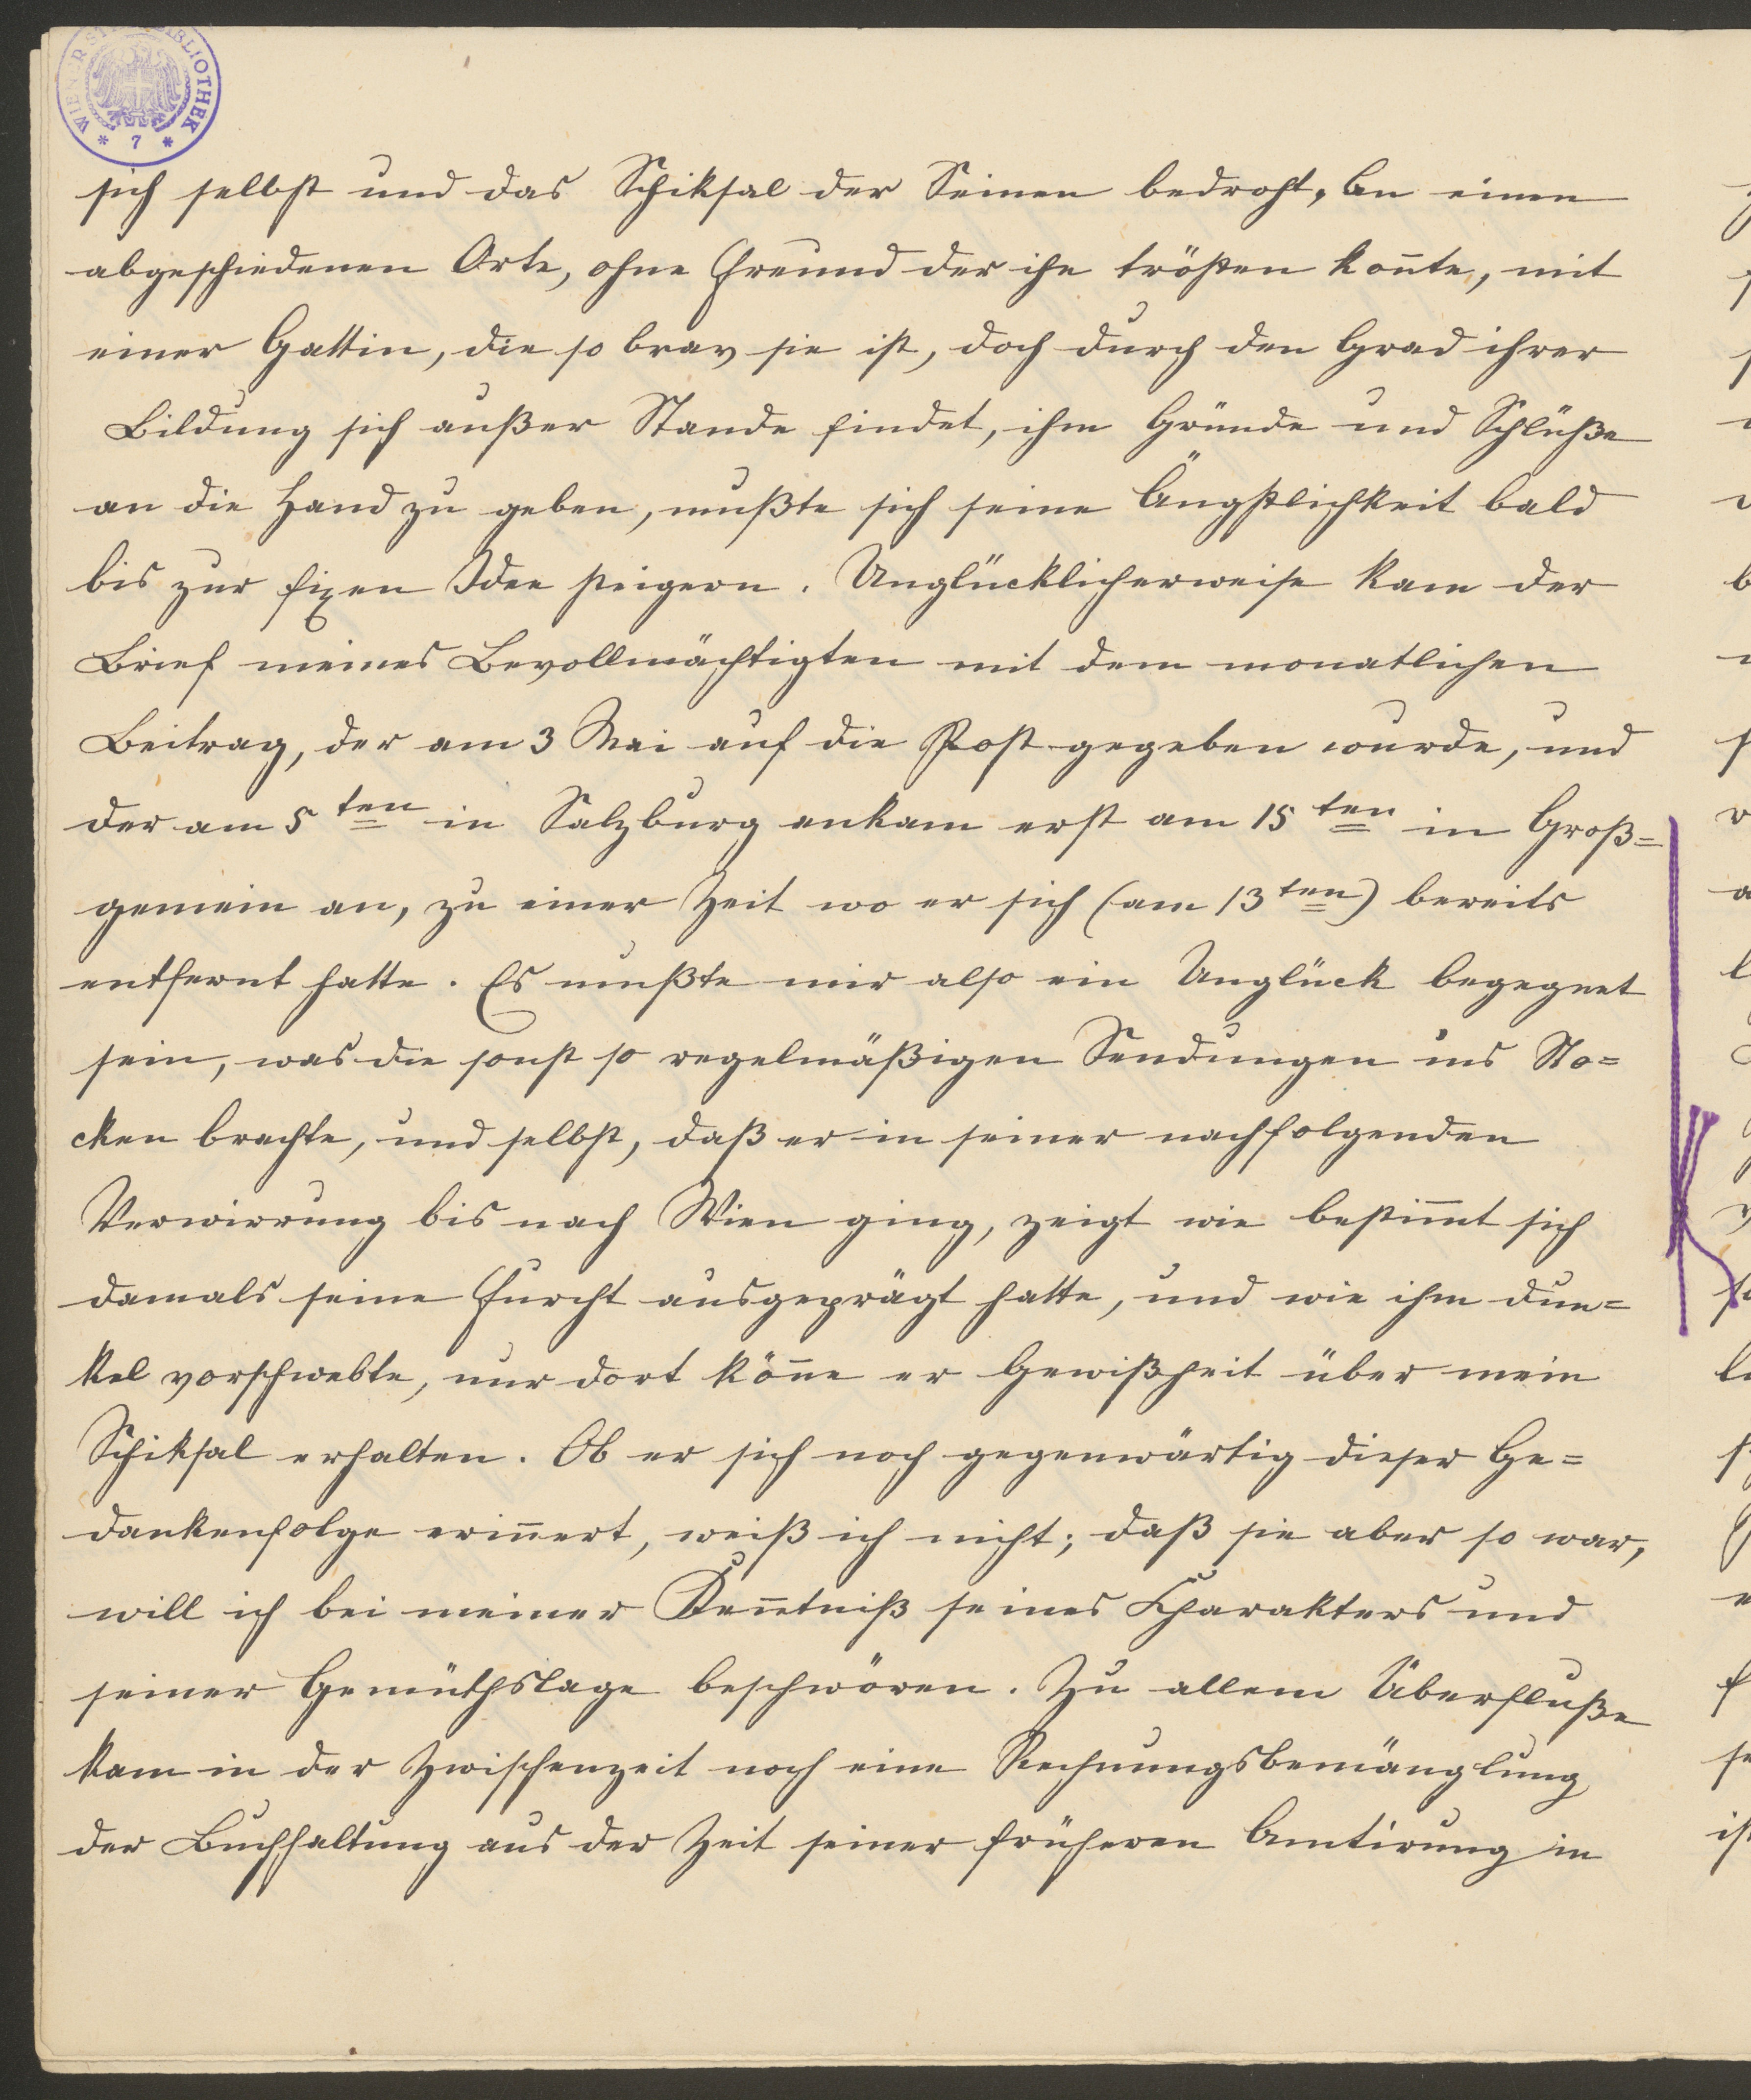 WIENER STADTBIBLIOTHEK * 7 *
sich selbst und das Schiksal der Seinen bedroht, An einen
abgeschiedenen Orte, ohne Freund der ihn trösten kon̄te, mit
einer Gattin, die so brav sie ist, doch durch den Grad ihrer
Bildung sich außer Stande findet, ihm Gründe und Schlüße
an die Hand zu geben, mußte sich seine Ängstlichkeit bald
bis zur fixen Idee steigern. Unglücklicherweise kam der
Brief meines Bevollmächtigten mit dem monatlichen
Beitrag, der am 3 Mai auf die Post gegeben wurde, und
der am 5ten in Salzburg ankam erst am 15ten in Groß=
gemein an, zu einer Zeit wo er sich (am 13ten) bereits
entfernt hatte. Es mußte mir also ein Unglück begegnet
sein, was die sonst so regelmäßigen Sendungen ins Sto=
cken brachte, und selbst, daß er in seiner nachfolgenden
Verwirrung bis nach Wien ging, zeigt wie bestim̄t sich
damals seine Furcht ausgeprägt hatte, und wie ihm dun=
kel vorschwebte, nur dort kön̄e er Gewißheit über mein
Schiksal erhalten. Ob er sich noch gegenwärtig dieser Ge=
dankenfolge erin̄ert, weiß ich nicht; daß sie aber so war,
will ich bei meiner Ken̄tniß seines Charakters und
seiner Gemüthslage beschwören. Zu allem Überfluße
kam in der Zwischenzeit noch eine Rechnungsbemänglung
der Buchhaltung aus der Zeit seiner früheren Amtirung in